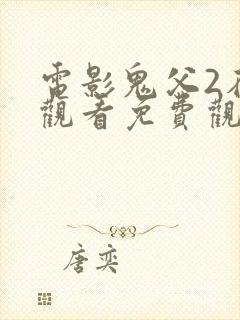 電影鬼父2在
觀看免費觀
唐奕